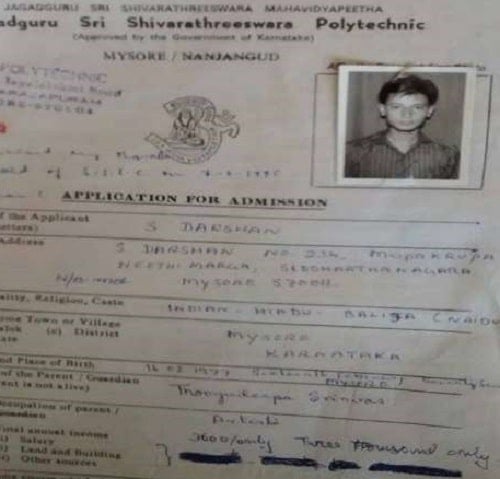 JAGADGURU SRI SHIVARATHREESWARA MAHAVIDYAPEETHA
adguru Sri Shivarathreeswara Polytechnic
(Approved by the Government of Karnataka)
MYSORE / NANJANGUD
POLYTECHNIC
APPLICATION FOR ADMISSION
of the Applicant
S DARSHAN
Address
S DARSHAN NO 234, MUPAKRUPA
NEETHI MARGA, SIDDHARTHANAGARA
MYSORE 570011
ality, Religion, Caste
INDIAN - HINDU - BALIJA (NAIDU
Town or Village
(c) District
MYSORE
ate
KARNATAKA
nd Place of Birth
16 02 1977
MYSORE
of the Parent / Guardian
ent is not alive)
Thoogudeepa Srinivas
Occupation of parent /
Guardian
Artist
inal annual income
i) Salary
3000/only Three Thousand only
ii) Land and Building
ii) Other sources